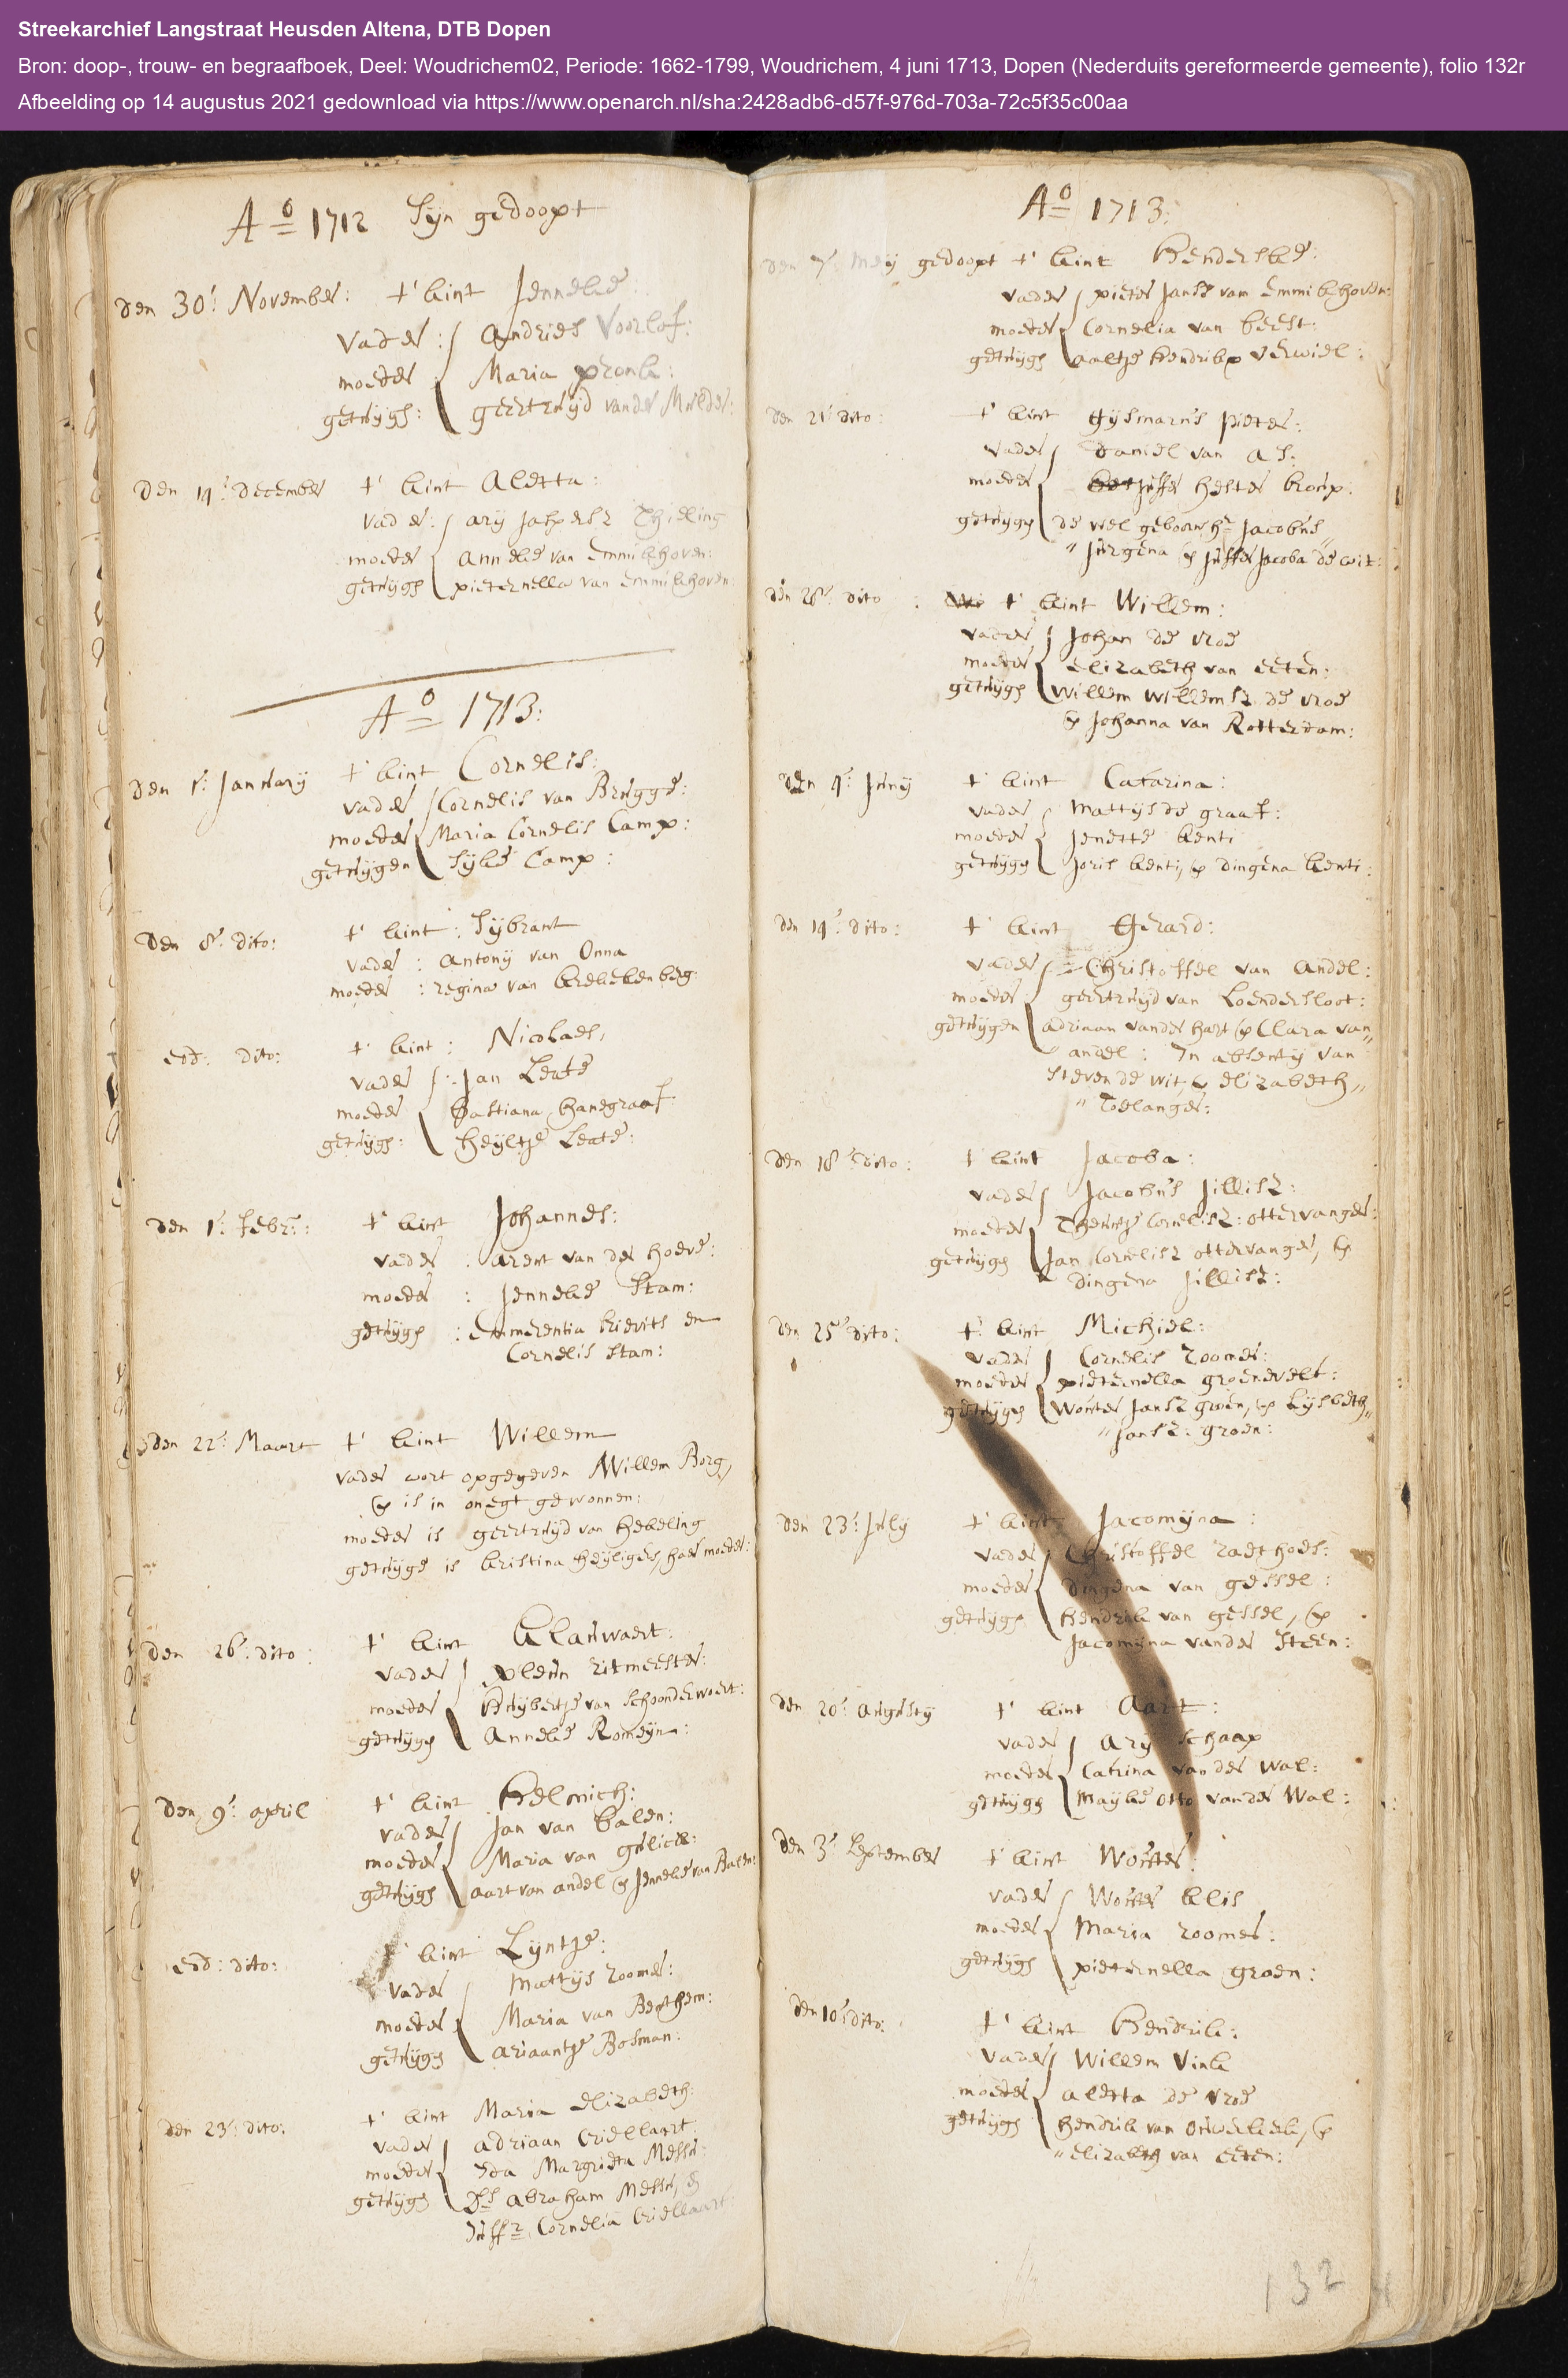 Streekarchief Langstraat Heusden Altena, DTB Dopen
Bron: doop-, trouw- en begraafboek, Deel: Woudrichem02, Periode: 1662-1799, Woudrichem, 4 juni 1713, Dopen (Nederduits gereformeerde gemeente), folio 132r
Afbeelding op 14 augustus 2021 gedownload via https://www.openarch.nl/sha:2428adb6-d57f-976d-703a-72c5f35c00aa
Ao 1712 Sijn gedoopt
Den 30: November: t' kint Jenneke
vader: Andries Voorlof:
moeder Maria pronk:
getuijgs: geertruijd vander Mulder:
Den 14: December t' kint Aletta:
vader: arij Jaspersz Thieling
moeder anneke van Emmikhoven:
getuijgs pieternella van Emmikhoven
Ao 1713:
Den 1: January t' kint Cornelis:
vader Cornelis van Brugge:
moeder Maria Cornelis Camp:
getuijgen Sijke Camp:
Den 8: dito: t' kint: Sijbrant
vader: antonij van Onna
moeder: regina van krekekenberg:
eod: dito: t' kint: Nicolaes,
vader: Jan Leate
moeder Bastiana hanegraaf
getuijgs: heijltje Leate:
Den 1: Febr: t' kint Johannes:
vader: arent van der hoeve:
moeder: Jenneke Stam:
getuijgs: Emmerentia kievits en
Cornelis Stam:
Den 22: Maart t' kint Willem
vader wort opgegeven Willem Borg,
& is in onegt gewonnen:
moeder is geertruijd van hekeling
getuijge is kristina heijligers, haer moeder:
Den 26: dito: t' kint Klauwaert:
vader pleun ritmeester:
moeder Huijbertje van Schoonderwoert:
getuijgs Anneke Romeijn:
Den 9: april t' kint Helmich:
vader Jan van balen:
moeder Maria van gulick:
getuijgs aart van andel & Jenneke van Balen:
eod: dito: t' kint Lijntje:
vader Mattijs roomer:
moeder Maria van Benthem:
getuijgs ariaantje Bosman:
den 23: dito: t' kint Maria Elizabeth:
vader adriaan Criellaart
moeder Ida Margrieta Messu:
getuijgs Ds abraham Messu, &
Juffr Cornelia Criellaart
Ao 1713:
den 7: meij gedoopt t' kint Henderske:
vader pieter Janse van Emmikhoven:
moeder Cornelia van beest:
getuijgs aaltje hendrikx verwiel:
den 21: dito: t' kint Gijsmarus pieter:
vader Daniel van As:
moeder Juffer hester kroup:
getuijgs de wel geboorn hr Jacobus
" Jurgena & Juffer Jacoba de wit:
den 28: dito: t' kint Willem:
vader Johan de vroe
moeder elizabeth van eeten:
getuijgs Willem Willemsz de vroe
& Johanna van Rotterdam:
den 4: Juny t' kint Catarina:
vader Mattijs de graaf:
moeder Jenette kenti
getuijgs Joris kenti, & Dingena kenti:
den 14: dito: t' kint Gerard:
vader Christoffel van Andel:
moeder geertruijd van Loendersloot:
getuijgen adriaan vander hart & Clara van
" andel: In absentij van
Steven de wit, & elizabeth
" Toelanger:
Den 18: dito: t' kint Jacoba:
vader Jacobus Jillisz:
moeder Theuntje Cornelisz: ottervanger:
getuijgs Jan Cornelisz ottervanger, &
Dingena Jillisz:
den 25: dito: t' kint Michiel:
vader Cornelis roomer:
moeder pieternella groenevelt:
getuijges Wouter Jansz groen, & Lijsbeth
" Jansz: groen:
den 23: July t' kint Jacomijna:
vader Christoffel raethoes:
moeder dingena van gessel:
getuijgs hendrik van gessel, &
Jacomijna vander Steen:
den 20: augusty t' kint Aart:
vader Ary Schaap
moeder Catrina van der Wal:
getuijgs Maijke otto vander Wal:
Den 3: September t' kint Wouter:
vader Wouter klis
moeder Maria roomer:
getuijgs pieternella groen:
Den 10: dito: t' kint Hendrik:
vader Willem Vink
moeder aletta de vroe
getuijgs hendrik van Ouwerkerk, &
" elizabeth van eeten:
132